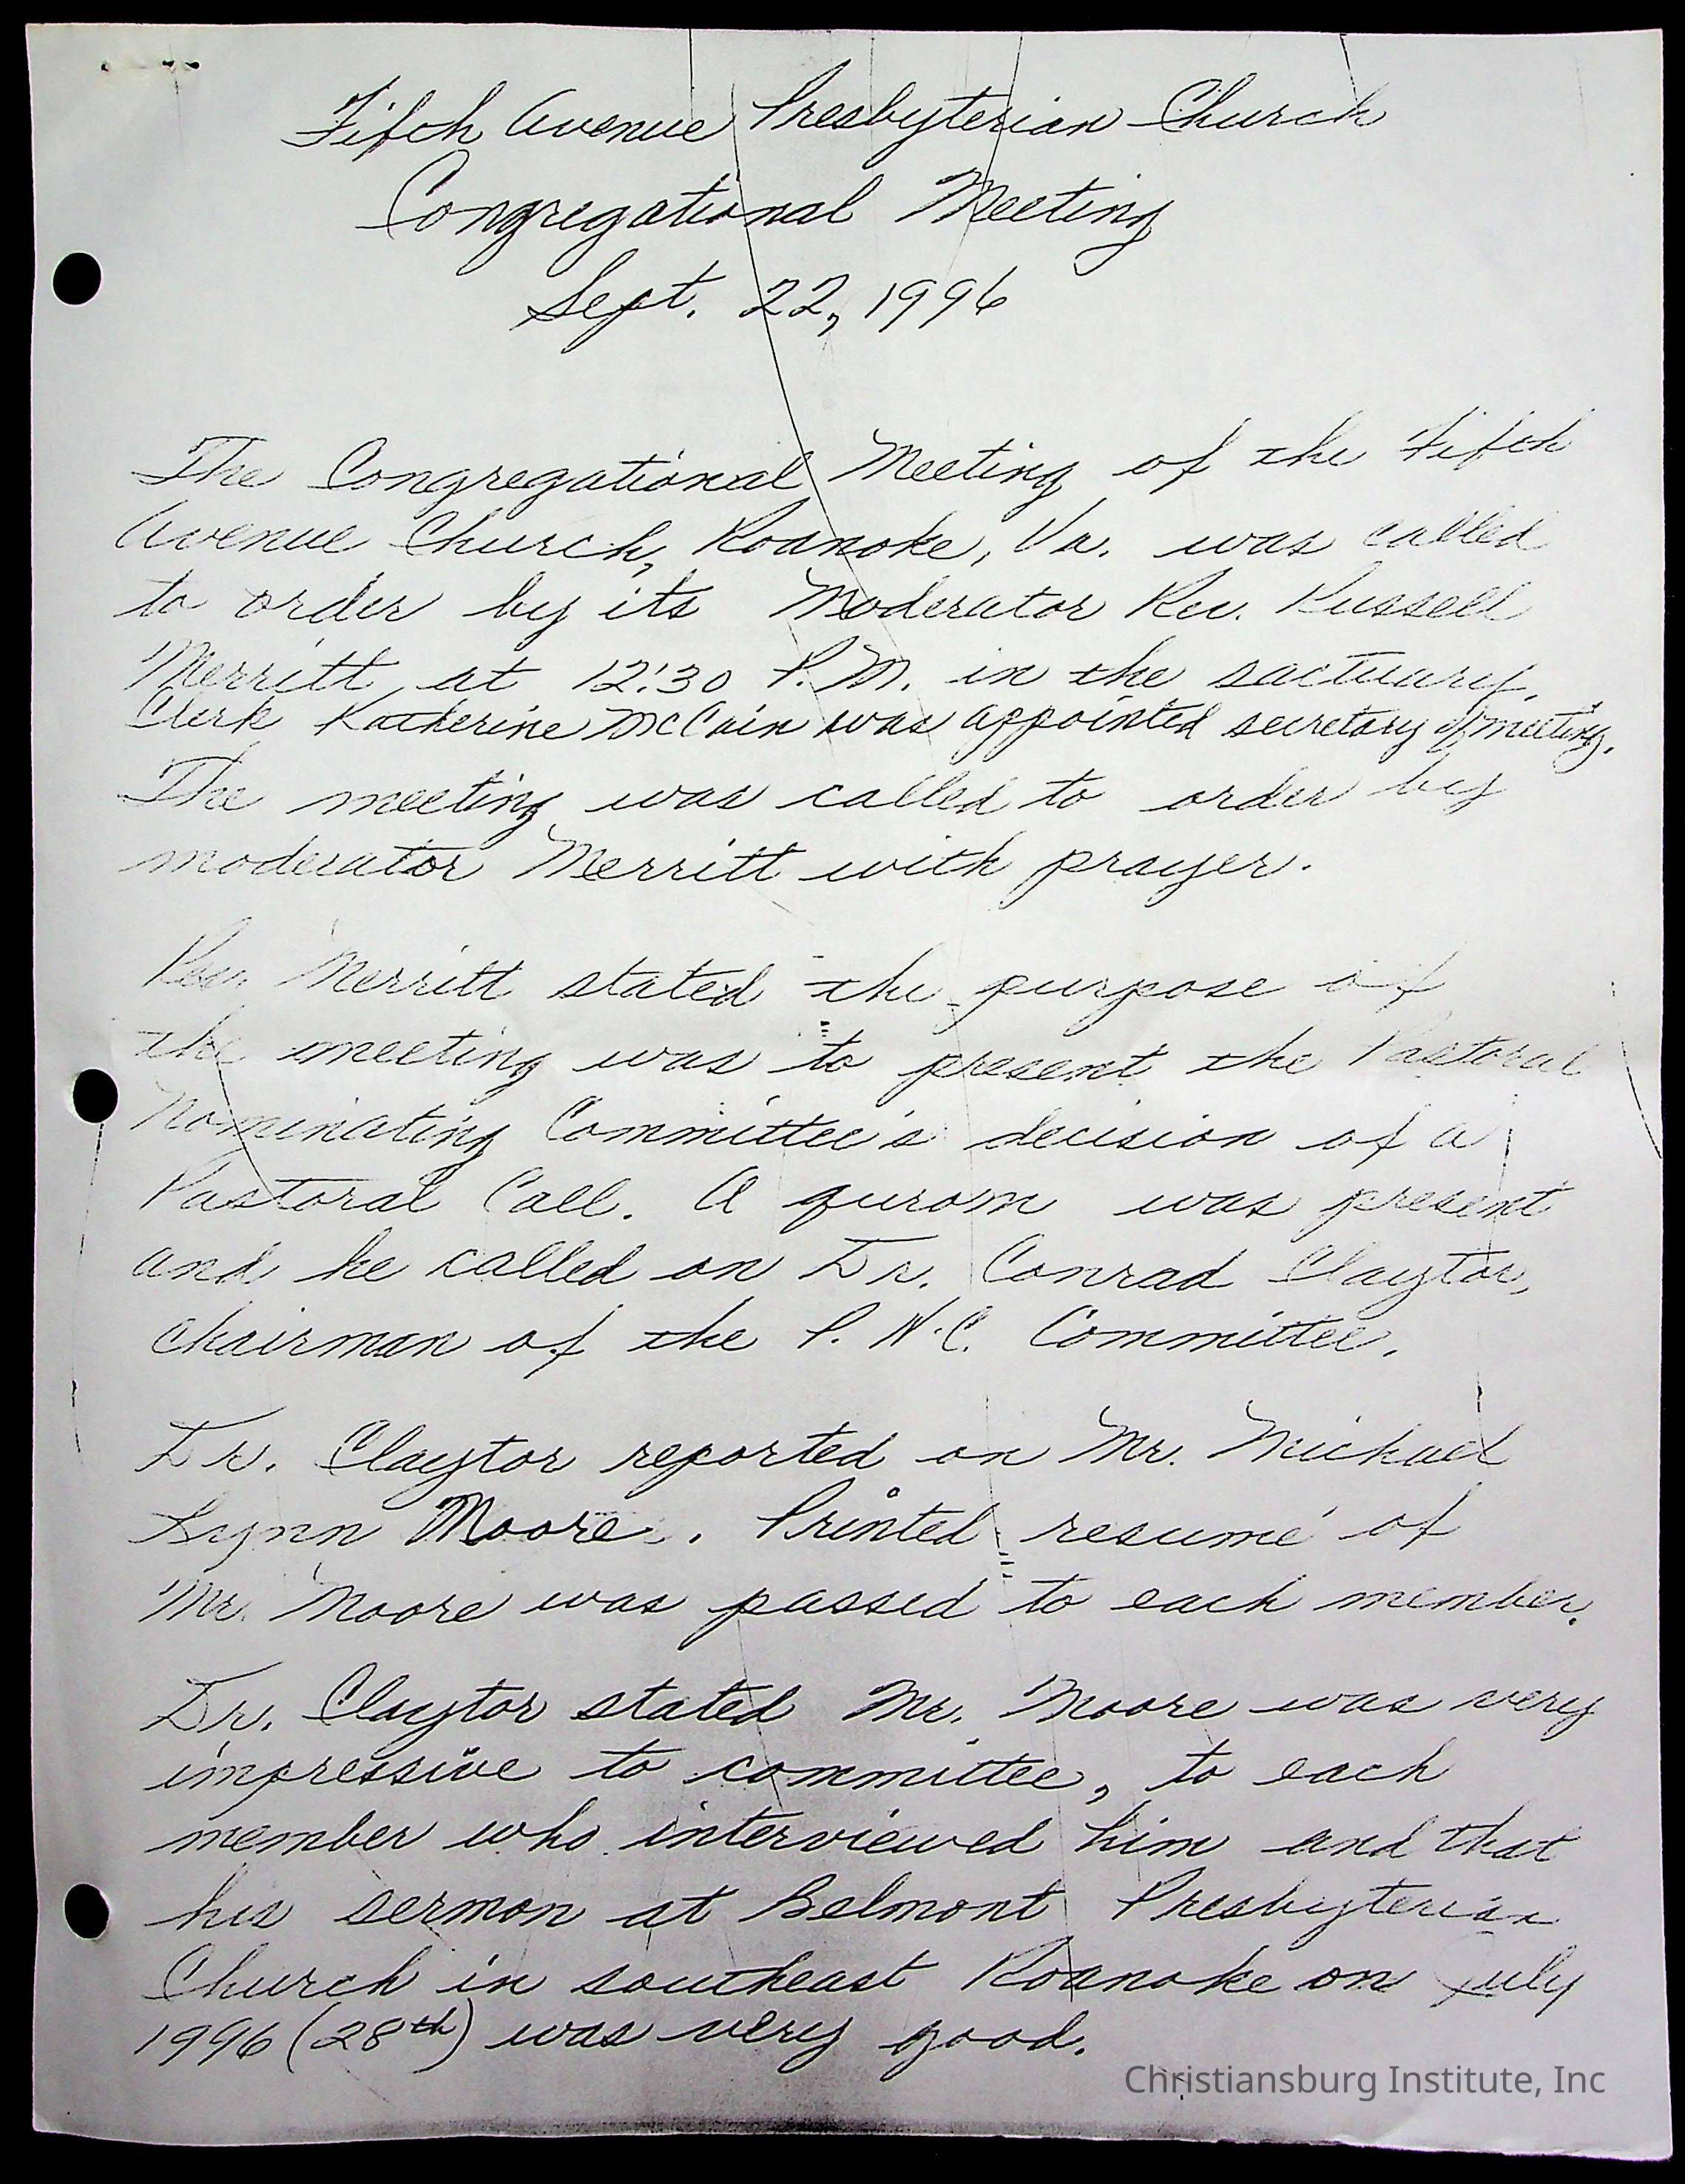 Fifth Avenue Presbyterian Church
Congregational Meeting
Sept. 22, 1996
The Congregational Meeting of the Fifth
Avenue Church, Roanoke, Va. was called
to order by its Moderator Rev. Russell
Merritt, at 12:30 P.M. in the sactuary.
Clerk Katherine McCain was appointed secretary of meeting.
The meeting was called to order by
moderator Merritt with prayer.
Rev. Merritt stated the purpose of
the meeting was to present the Pastoral
Nominating Committee's decision of a
Pastoral Call. A qurom was present
and he called on Dr. Conrad Claytor,
Chairman of the P.N.C. Committee.
Dr. Claytor reported on Mr. Michael
Lynn Moore. Printed resumé of
Mr. Moore was passed to each member.
Dr. Claytor stated Mr. Moore was very
impressive to committee, to each
member who interviewed him and that
his sermon at Belmont Presbyterian
Church in southeast Roanoke on July
1996 (28th) was very good.
Christiansburg Institute, Inc